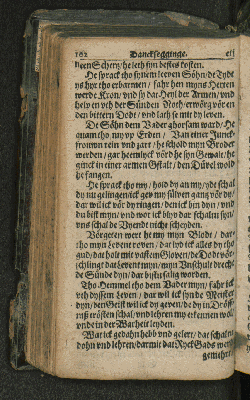 102 Dancksegginge.
neen Schertz/he leth syn bestes kosten.
He sprack tho synem leeven Söhn/de Tydt
ys hyr tho erbarmen/ fahr hen myns Herten
werde Kron/ vnd sy dat Heyl der Armen/ vnd
help en vth der Sünden Noth/erwörg vör en
den bittern Dodt/ vnd lath se mit dy leven.
De Söhn dem Vader ghorsam ward/ He
quam tho my vp Erden/ Van einer Junck-
frouwn rein vnd zart/ he schold myn Broder
werden/ gar heemlyck vörd he syn Gewalt/ he
ginck in einer armen Gstalt/ den Düvel wold
he fangen.
He sprack tho my/ hold dy an my/ydt schal
dy nu gelingen/ick gev my sülven gantz vör dy/
dar wil ick vör dy ringen/ denn ick byn dyn/ vnd
du bist myn/ vnd wor ick blyv dar schaltu syn/
vns schal de Vyendt nicht scheyden.
Vorgeten wert he my myn Blodt/ dar-
tho myn Levent roven/ dat lyd ick alles dy tho
gud/ dat holt mit vastem Gloven/ de Dodt vör-
schlingt dat Levent myn/ myn Vnschult drecht
de Sünde dyn/ dar bistu salig worden.
Tho Hemmel tho dem Vader myn/ fahr ick
vth dyssem Leven/ dar wil ick syn de Meister
dyn/ den Geist wil ick dy geven/ de dy in Dröff-
nüß trösten schal/ vnd lehren my erkennen wol/
vnde in der Warheit leyden.
Wat ick gedahn hebb vnd gelert/ dat schaltu
dohn vnd lehren/ darmit dat Ryck Gads wert
gemehrt/